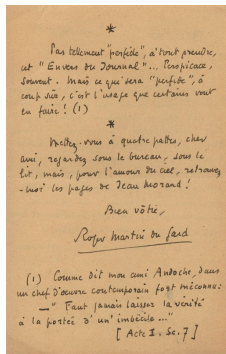 *
Pas tellement "perfide", à tout prendre,
cet "Envers du Journal"... Perspicace,
souvent. Mais ce qui sera "perfide", à
coup sûr, c'est l'usage que certains vont
en faire! (1)
*
Mettez-vous à quatre pattes, cher
ami, regardez sous le bureau, sous le
lit, mais, pour l'amour du ciel, retrouvez
-moi les pages de Jean Morand!
Bien vôtre,
Roger Martin du Gard
(1) Comme dit mon ami Andoche, dans
un chef d'œuvre contemporain fort méconnu:
— "Faut jamais laisser la vérité
à la portée d'un imbécile..."
[Acte I. Sc. 7]